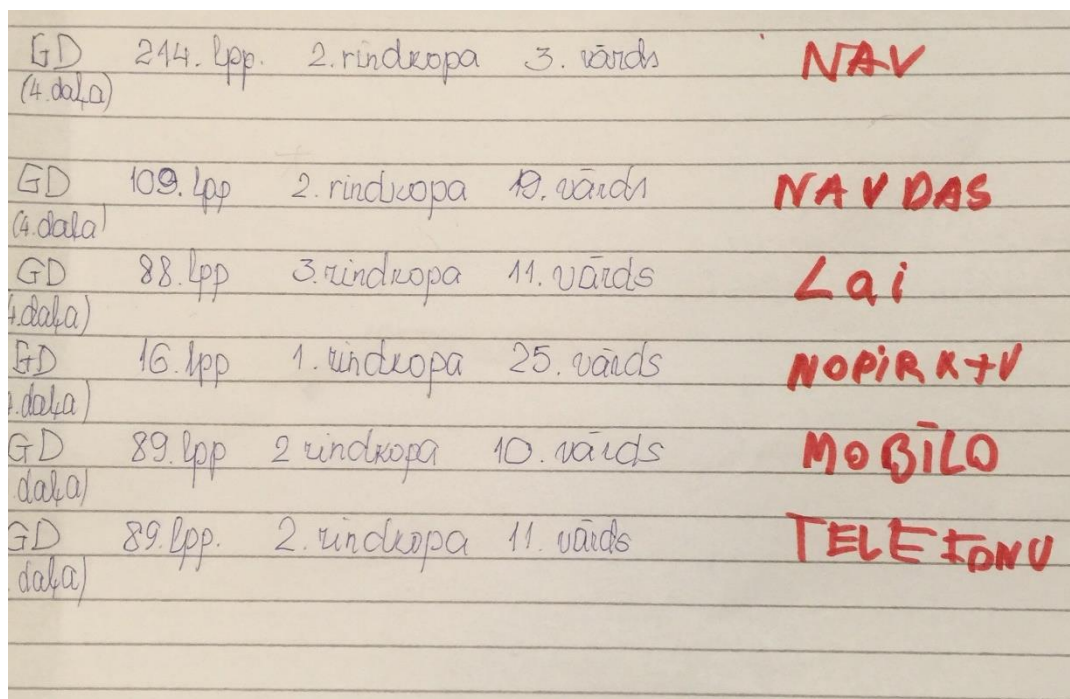 GD 214. lpp. 2. rindkopa 3. vārds NAV
(4.daļa)
GD 109. lpp 2. rindkopa 19. vārds NAV DAS
(4.daļa)
GD 88. lpp 3. rindkopa 11. vārds Lai
4.daļa)
GD 16. lpp 1. rindkopa 25. vārds NOPiRK+V
.daļa)
GD 89. lpp 2 rindkopa 10. vārds MOBĪLO
daļa)
GD 89. lpp. 2. rindkopa 11. vārds TELEFONU
daļa)